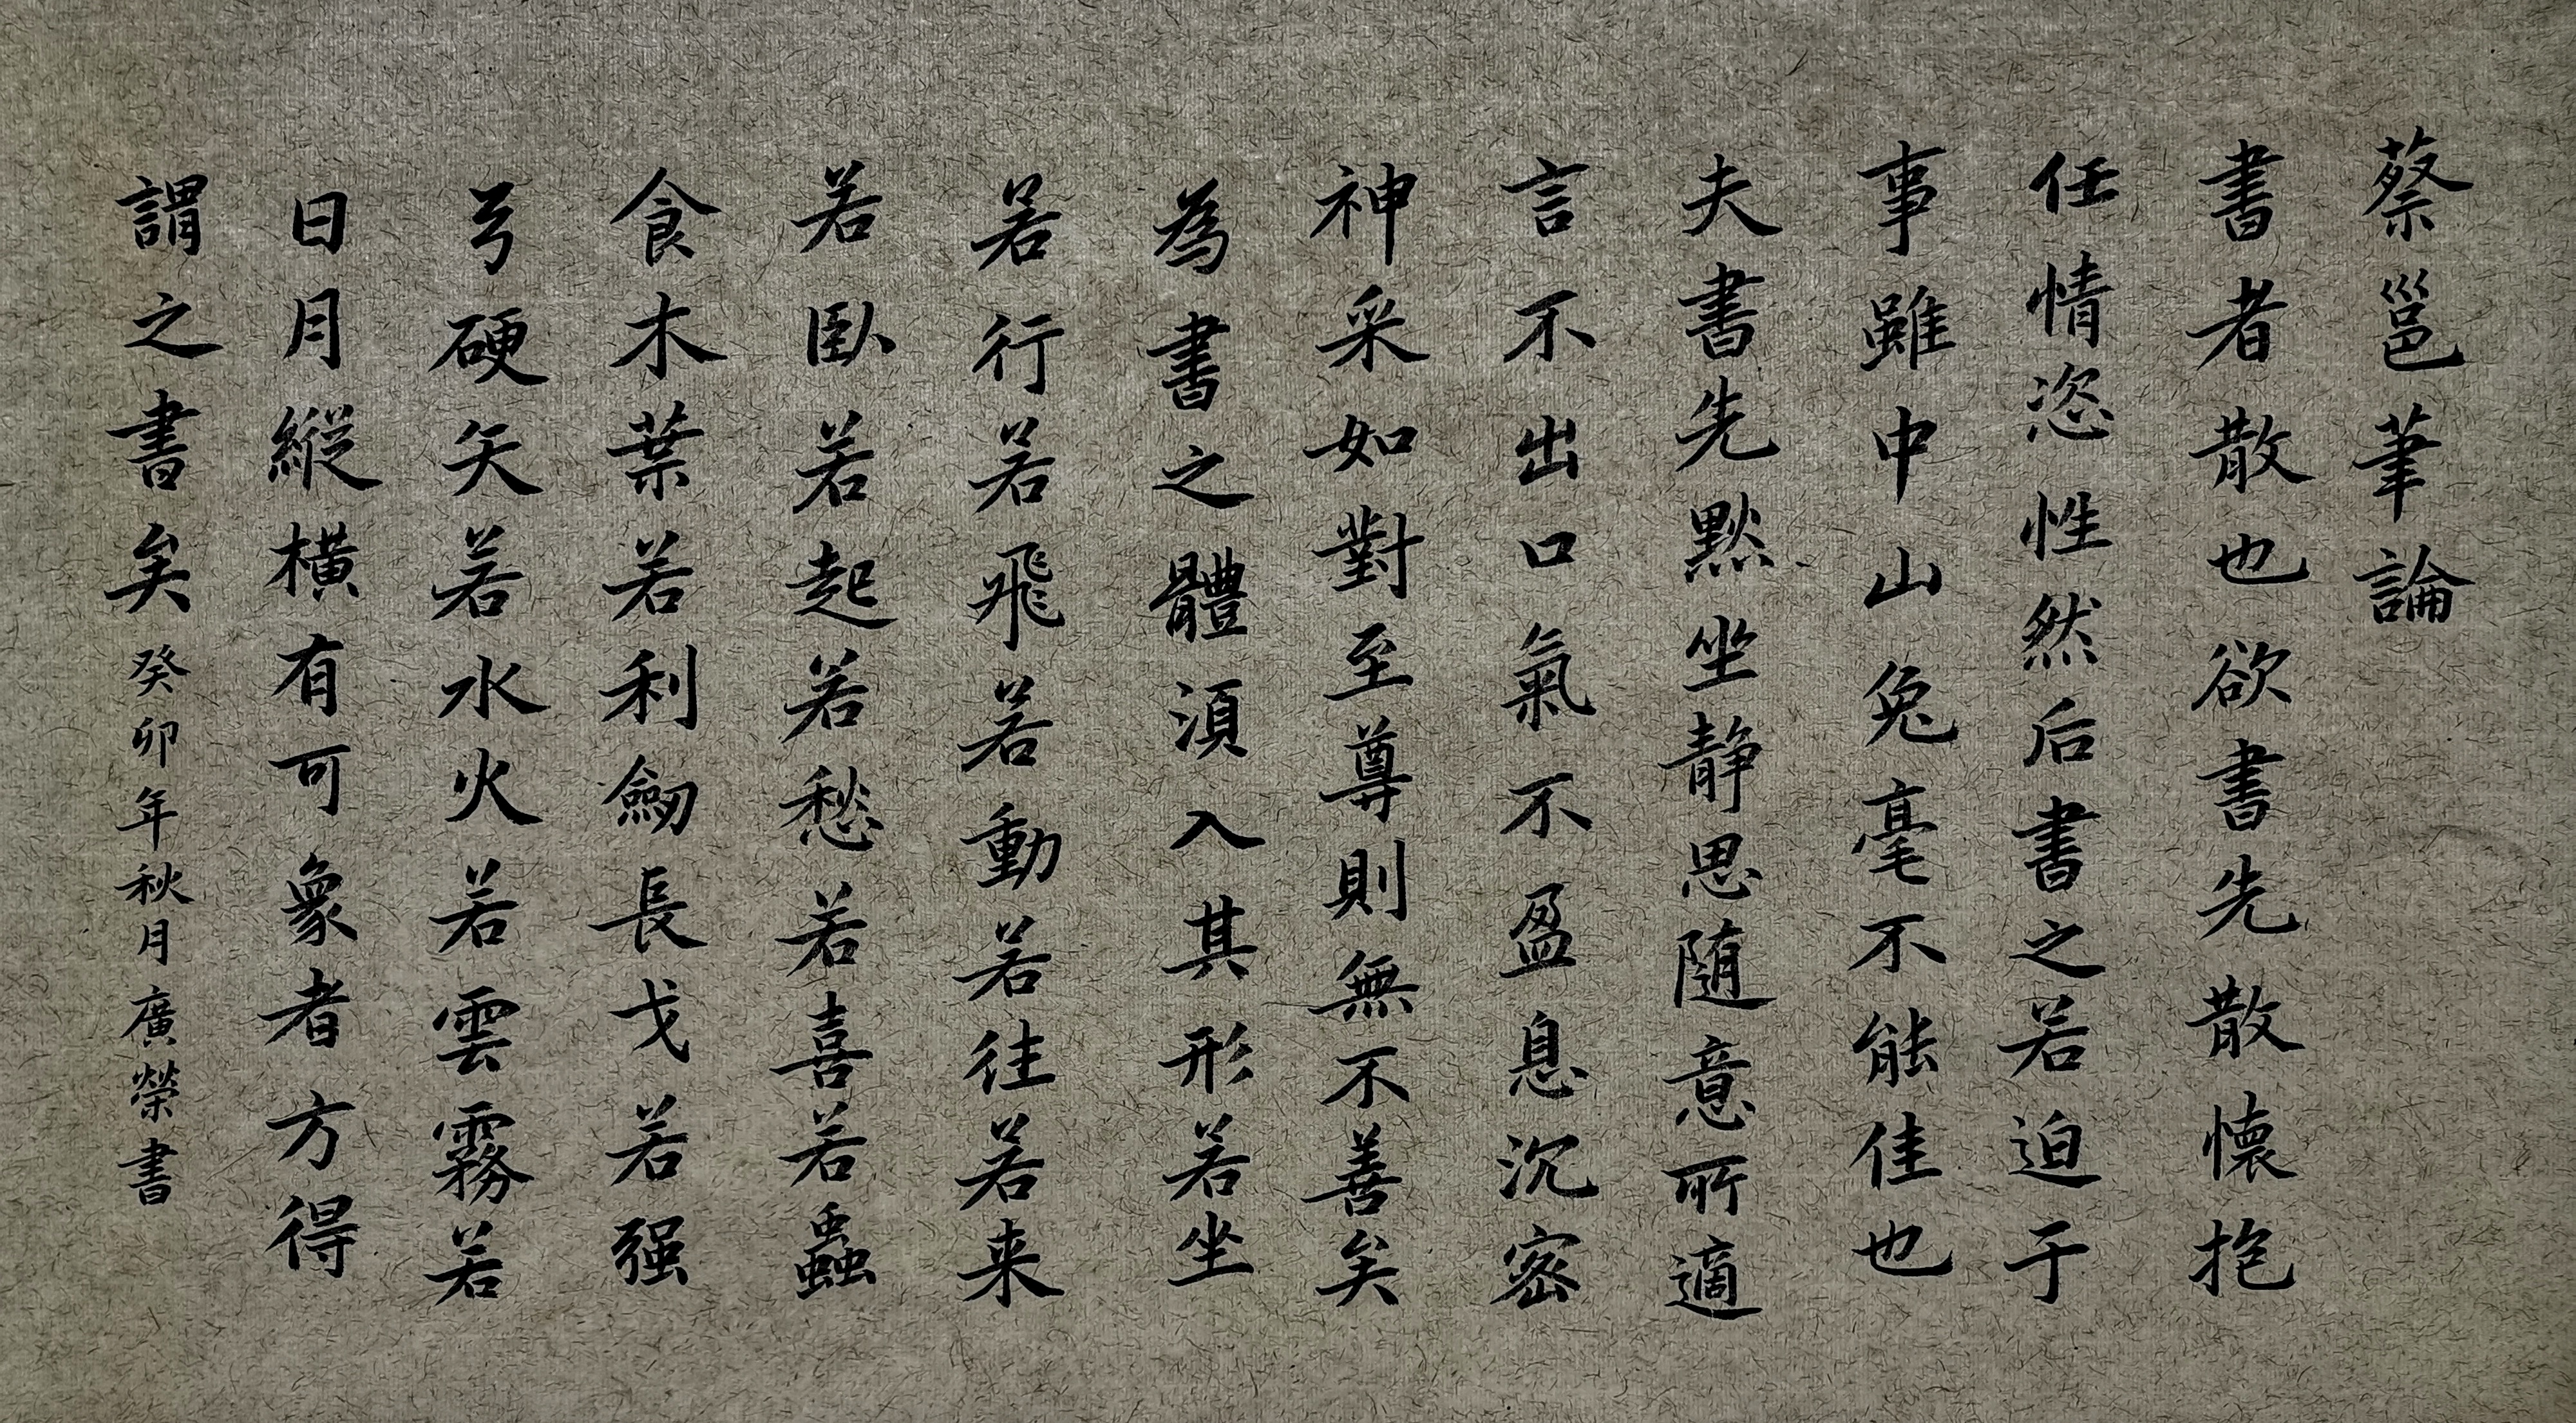 蔡邕筆論
書者散也欲書先散懷抱
任情恣性然后書之若迫于
事雖中山兔毫不能佳也
夫書先黙坐静思随意所適
言不出口氣不盈息沉密
神采如對至尊則無不善矣
為書之體須入其形若坐
若行若飛若動若往若来
若臥若起若愁若喜若蟲
食木葉若利劒長戈若强
弓硬矢若水火若雲霧若
日月縱橫有可象者方得
謂之書矣癸卯年秋月廣榮書